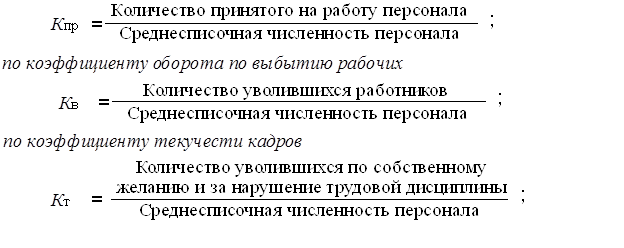 Количество принятого на работу персонала
Кпр = ;
Среднесписочная численность персонала
по коэффициенту оборота по выбытию рабочих
Количество уволившихся работников
Кв = ;
Среднесписочная численность персонала
по коэффициенту текучести кадров
Количество уволившихся по собственному
желанию и за нарушение трудовой дисциплины
Кт = ;
Среднесписочная численность персонала